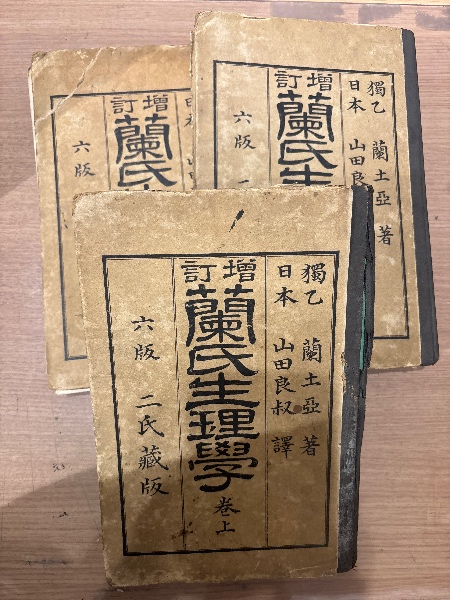 獨乙 蘭土亞 著
日本 山田良叔 譯
增訂
蘭氏生理學 卷上
六版 二氏藏版
獨乙 蘭土亞 著
日本 山田良
增訂
蘭氏生
六版
日本 山田
增訂
蘭氏
六版